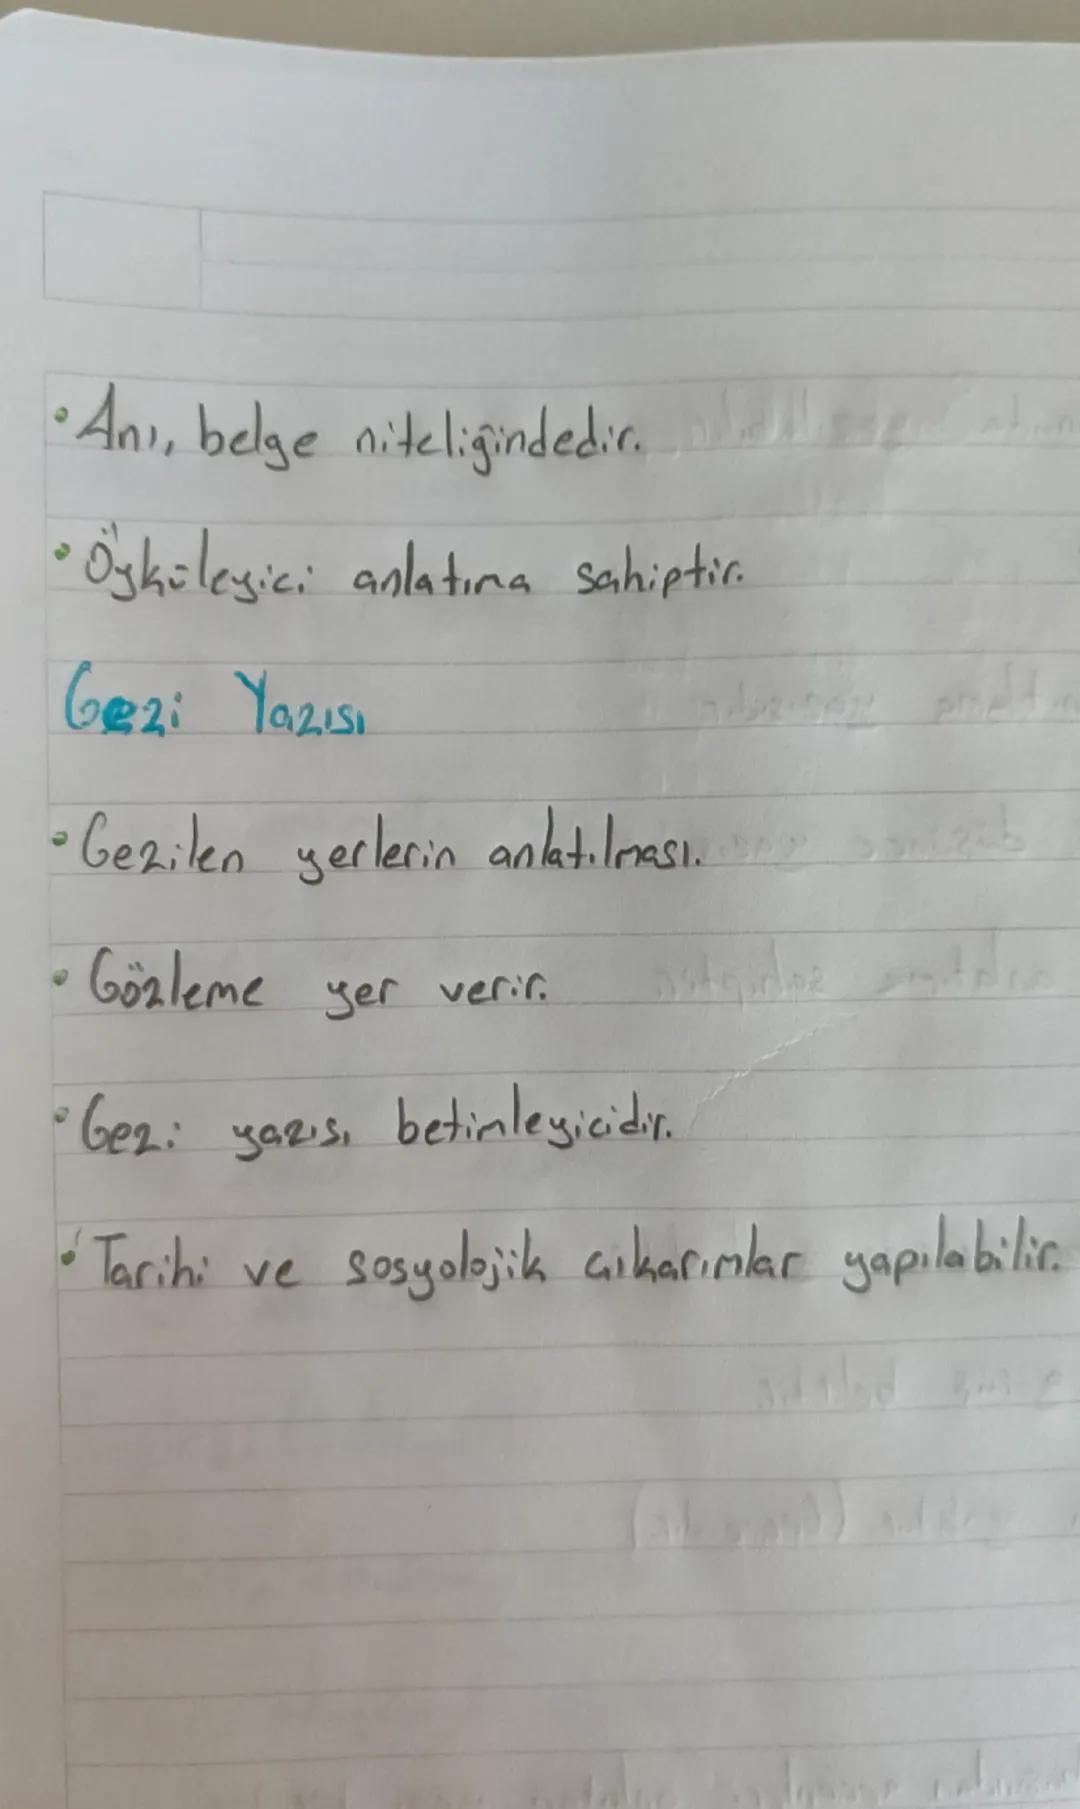 • Anı, belge niteliğindedir.
• Öyküleyici anlatıma sahiptir.
Gezi Yazısı
• Gezilen yerlerin anlatılması.
• Gözleme yer verir.
• Gezi yazısı betimleyicidir.
• Tarihi ve sosyolojik çıkarımlar yapılabilir.